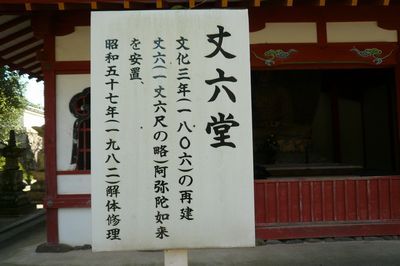 丈六堂
文化三年(一八〇六)の再建
丈六(一丈六尺の略)阿弥陀如来
を安置
昭和五十七年(一九八二)解体修理